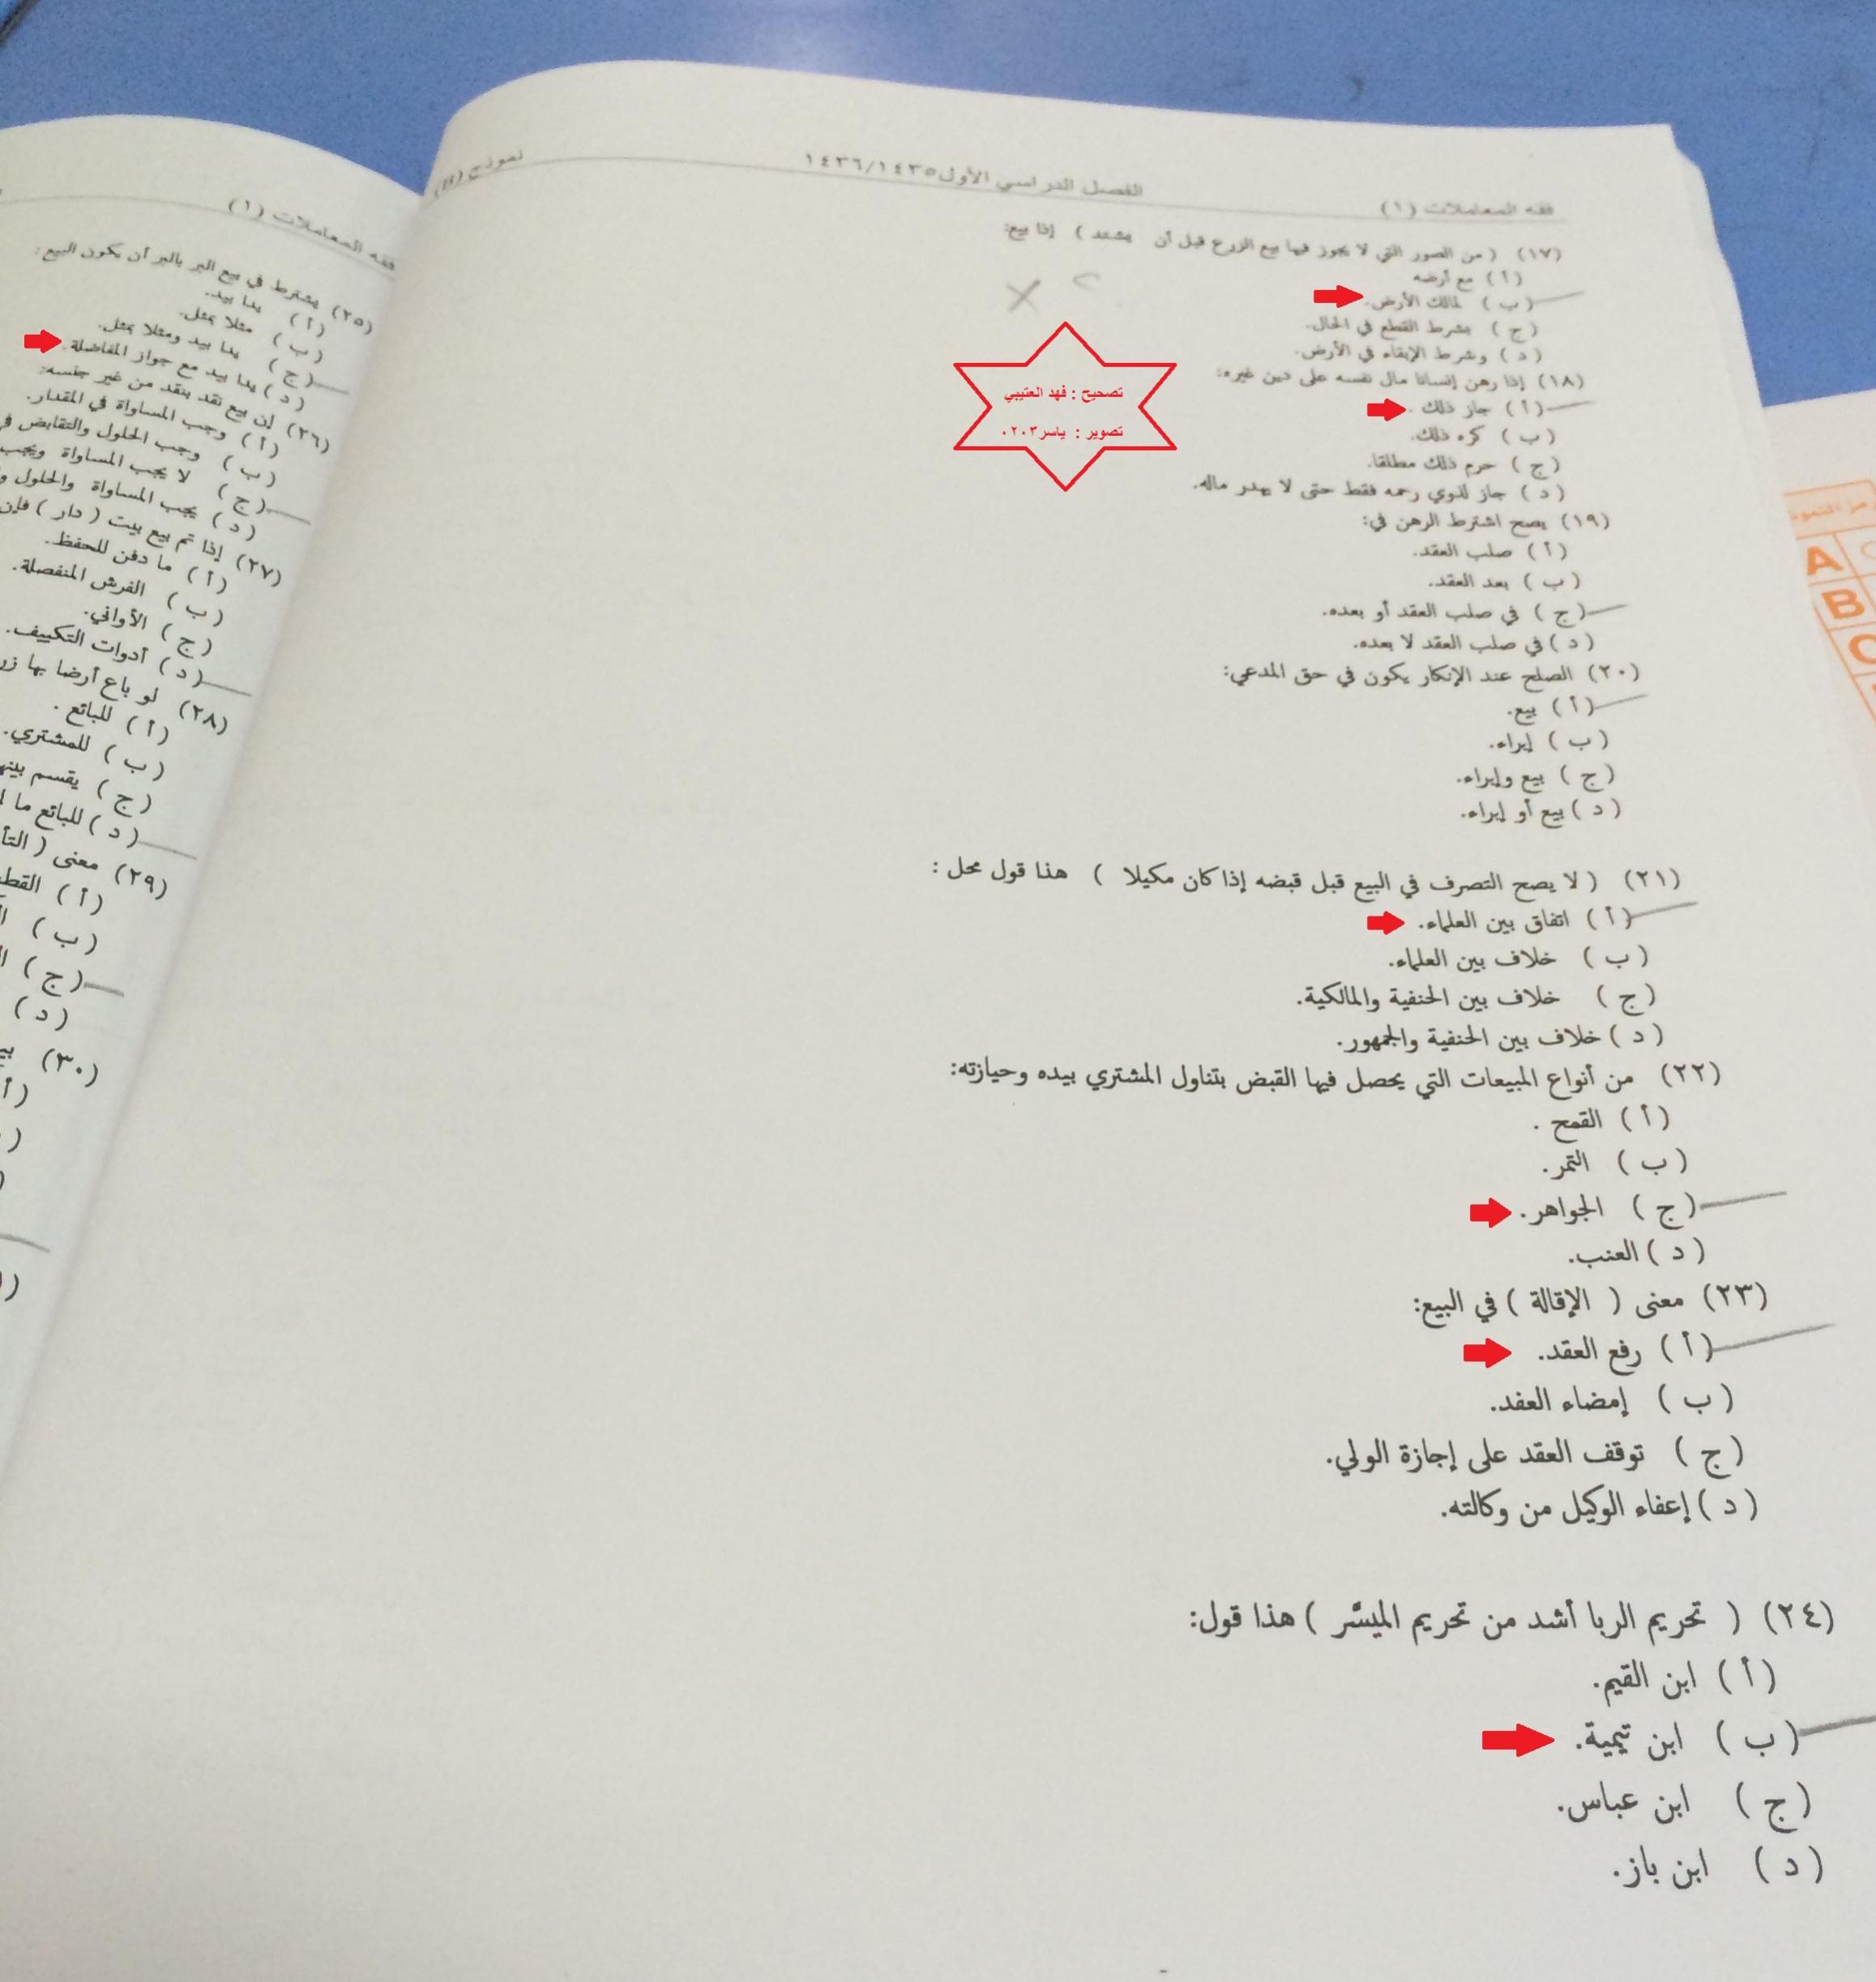 فقه المعاملات (١) الفصل الدراسي الأول ١٤٣٦/١٤٣٥ نموذج (B)
(١٧) ( من الصور التي لا يجوز فيها بيع الزرع قبل أن يشتد ) إذا بيع:
( أ ) مع أرضه
( ب ) لمالك الأرض.
( ج ) بشرط القطع في الحال.
( د ) وشرط الإبقاء في الأرض.
(١٨) إذا رهن إنسانا مال نفسه على دين غيره:
( أ ) جاز ذلك .
( ب ) كره ذلك.
( ج ) حرم ذلك مطلقا.
( د ) جاز لذوي رحمه فقط حتى لا يهدر ماله.
(١٩) يصح اشترط الرهن في:
( أ ) صلب العقد.
( ب ) بعد العقد.
( ج ) في صلب العقد أو بعده.
( د ) في صلب العقد لا بعده.
(٢٠) الصلح عند الإنكار يكون في حق المدعي:
( أ ) بيع.
( ب ) إبراء.
( ج ) بيع وإبراء.
( د ) بيع أو إبراء.
(٢١) ( لا يصح التصرف في البيع قبل قبضه إذا كان مكيلا ) هذا قول محل :
( أ ) اتفاق بين العلماء.
( ب ) خلاف بين العلماء.
( ج ) خلاف بين الحنفية والمالكية.
( د ) خلاف بين الحنفية والجمهور.
(٢٢) من أنواع المبيعات التي يحصل فيها القبض بتناول المشتري بيده وحيازته:
( أ ) القمح .
( ب ) التمر.
( ج ) الجواهر.
( د ) العنب.
(٢٣) معنى ( الإقالة ) في البيع:
( أ ) رفع العقد.
( ب ) إمضاء العفد.
( ج ) توقف العقد على إجازة الولي.
( د ) إعفاء الوكيل من وكالته.
(٢٤) ( تحريم الربا أشد من تحريم الميسَّر ) هذا قول:
( أ ) ابن القيم.
( ب ) ابن تيمية.
( ج ) ابن عباس.
( د ) ابن باز.
تصحيح : فهد العتيبي
تصوير : ياسر٠٢٠٣
فقه المعاملات (١)
(٢٥) يشترط في بيع البر بالبر أن يكون البيع:
( أ ) يدا بيد.
( ب ) مثلا بمثل.
( ج ) يدا بيد ومثلا بمثل.
( د ) يدا بيد مع جواز المفاضلة.
(٢٦) إن بيع نقد بنقد من غير جنسه:
( أ ) وجب المساواة في المقدار.
( ب ) وجب الحلول والتقابض في
( ج ) لا يجب المساواة ويجب
( د ) يجب المساواة والحلول و
(٢٧) إذا تم بيع بيت ( دار ) فإن
( أ ) ما دفن للحفظ.
( ب ) الفرش المنفصلة.
( ج ) الأواني.
( د ) أدوات التكييف.
(٢٨) لو باع أرضا بها زر
( أ ) للبائع .
( ب ) للمشتري.
( ج ) يقسم بينه
( د ) للبائع ما
(٢٩) معنى ( التأ
( أ ) القط
( ب )
( ج )
( د )
(٣٠) بي
A
B
C